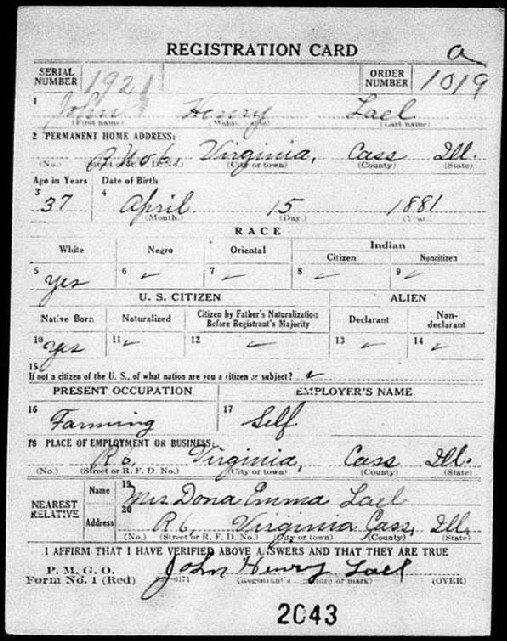 REGISTRATION CARD a
SERIAL NUMBER 1921 ORDER NUMBER 1019
1 John Henry Lael
(First name) (Last name)
2 PERMANENT HOME ADDRESS:
R No 6 Virginia, Cass Ill.
(No.) (City or town) (County) (State)
Age in Years Date of Birth
3 37 4 April 15 1881
(Month.) (Day.) (Year.)
RACE
White Negro Oriental Indian
Citizen Noncitizen
5 Yes 6 ✓ 7 ✓ 8 ✓ 9 ✓
U. S. CITIZEN ALIEN
Native Born Naturalized Citizen by Father's Naturalization Before Registrant's Majority Declarant Non-declarant
10 Yes 11 ✓ 12 ✓ 13 ✓ 14 ✓
15
If not a citizen of the U. S., of what nation are you a citizen or subject? ✓
PRESENT OCCUPATION EMPLOYER'S NAME
16 Farming 17 Self
18 PLACE OF EMPLOYMENT OR BUSINESS:
R 6 Virginia, Cass Ill.
(No.) (Street or R. F. D. No.) (City or town) (County) (State)
NEAREST RELATIVE Name 19 Mrs Dona Emma Lael
Address 20 R 6, Virginia Cass, Ill.
(No.) (Street or R. F. D. No.) (City or town) (County) (State)
I AFFIRM THAT I HAVE VERIFIED ABOVE ANSWERS AND THAT THEY ARE TRUE
P. M. G. O.
Form No. 1 (Red) John Henry Lael (OVER)
2043